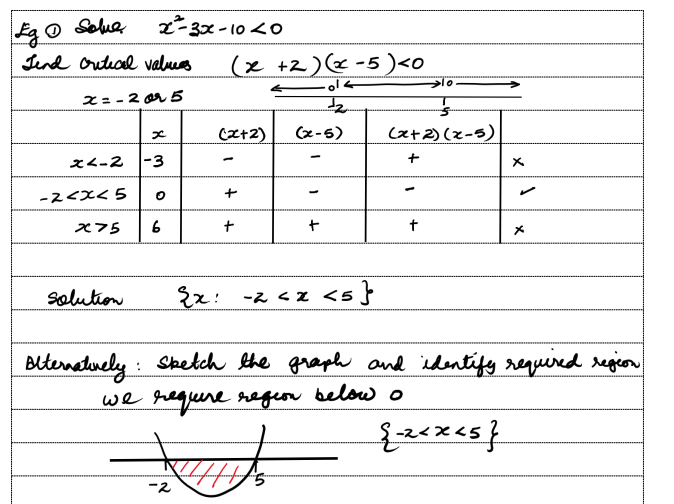 Eg ① Solve x²-3x-10<0
Find critical values (x+2)(x-5)<0
x = -2 or 5
-2 5
x (x+2) (x-5) (x+2)(x-5)
x<-2 -3 - - + ×
-2<x<5 0 + - - ✓
x>5 6 + + + ×
Solution {x: -2 < x < 5}
Alternatively: Sketch the graph and identify required region
we require region below 0
{-2<x<5}
-2 5